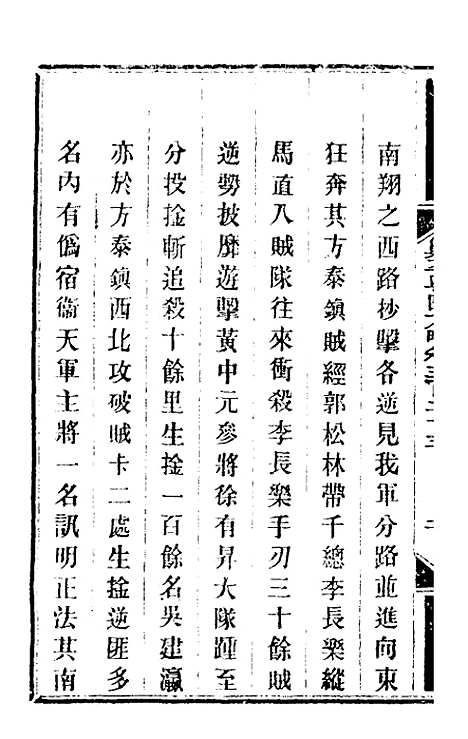 南翔之西路抄擊各逆見我軍分路並進向東
狂奔其方泰鎮賊經郭松林帶千總李長樂縱
馬直入賊隊往來衝殺李長樂手刃三十餘賊
逆勢披靡遊擊黃中元參將徐有昇大隊踵至
分投擒斬追殺十餘里生擒一百餘名吳建瀛
亦於方泰鎮西北攻破賊卡二處生擒逆匪多
名內有僞宿衞天軍主將一名訊明正法其南